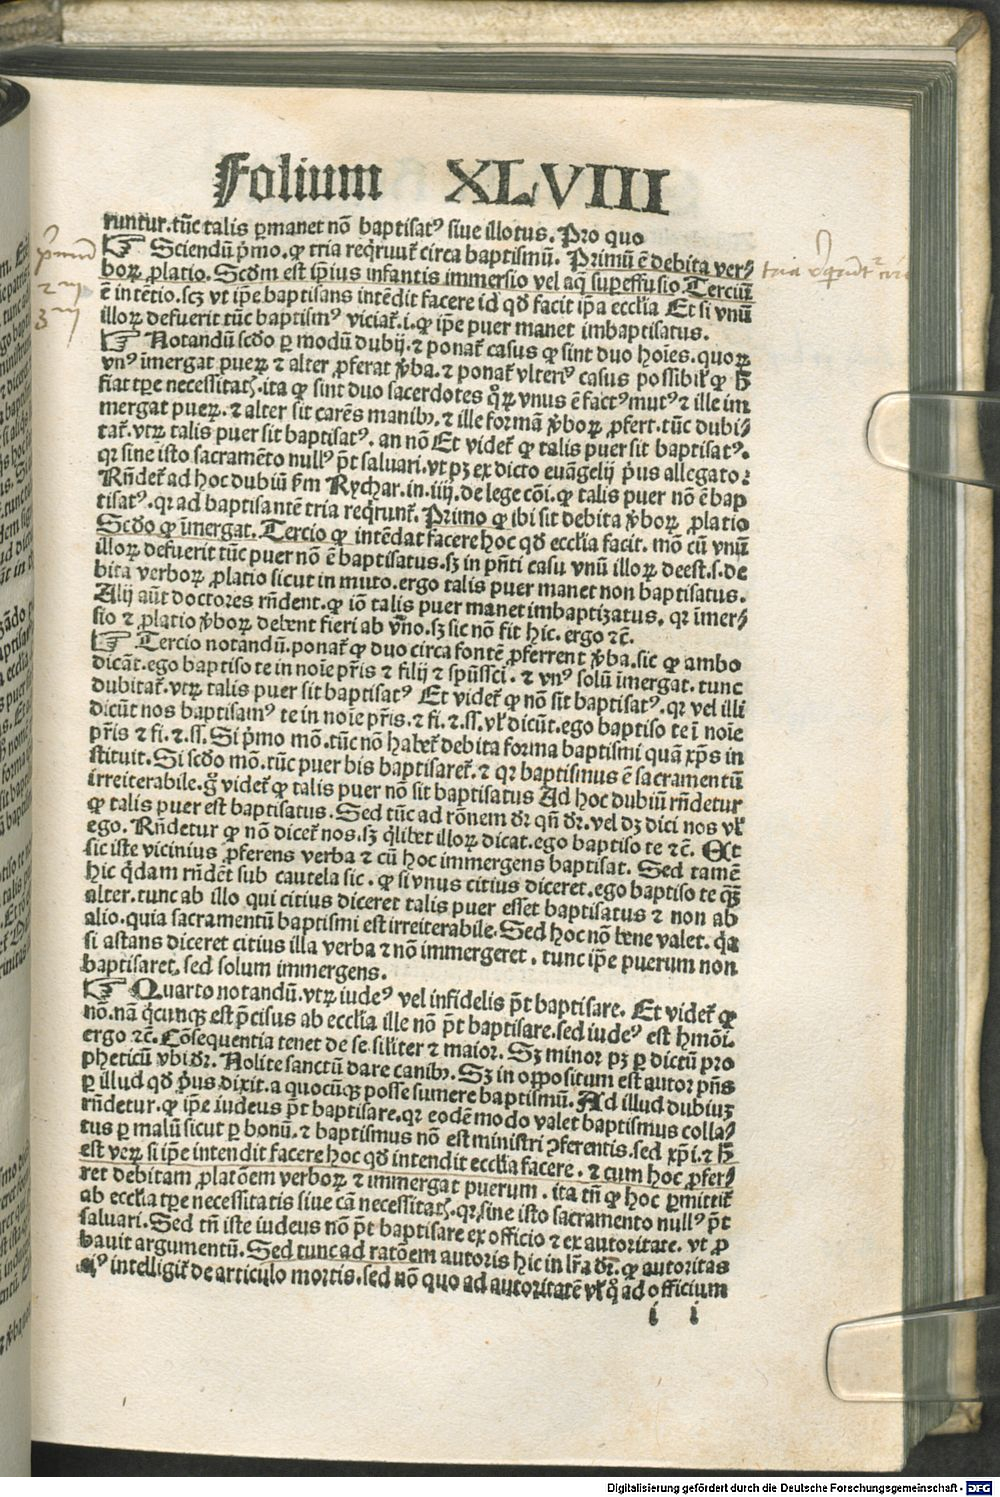 Folium XLVIII
runtur.tūc talis ꝑmanet nō baptisatꝰ siue illotus. Pro quo
☞ Sciendū p̄mo. ꝙ tria reqͥruūt᷑ circa baptismū. Primū ē debita ver⸗
boꝝ ꝓlatio. Scd̄m est ip̄ius infantis immersio vel aq̄ suꝑeffusio. Terciū
ē intētio. scꝫ vt ip̄e baptisans intēdit facere id qd̄ facit ip̄a ecclīa Et si vnū
illoꝝ defuerit tūc baptismꝰ viciat᷑.i. ꝙ ip̄e puer manet imbaptisatus.
☞ Notandū scd̄o ꝑ modū dubij. ⁊ ponat᷑ casus ꝙ sint duo hoīes. quoꝝ
vnꝰ īmergat pueꝝ ⁊ alter ꝓferat v̄ba. ⁊ ponat᷑ vlteriꝰ casus possibil᷑ ꝙ h̄
fiat tꝑe necessitatꝭ. ita ꝙ sint duo sacerdotes qͦꝝ vnus ē factꝰ mutꝰ ⁊ ille im
mergat pueꝝ. ⁊ alter sit carēs manibꝫ ⁊ ille formā v̄boꝝ ꝓfert. tūc dubi⸗
tat᷑. vtꝝ talis puer sit baptisatꝰ. an nō Et videt᷑ ꝙ talis puer sit baptisatꝰ.
qꝛ sine isto sacramēto nullꝰ p̄t saluari. vt pꝫ ex dicto euāgelij pͥus allegato:
Rn̄det᷑ ad hoc dubiū ẜm Rychar. in.iiij. de lege cōi. ꝙ talis puer nō ē bap
tisatꝰ. qꝛ ad baptisantē tria reqͥrunt᷑. Primo ꝙ ibi sit debita v̄boꝝ ꝓlatio
Scd̄o ꝙ īmergat. Tercio ꝙ intēdat facere hoc qd̄ ecclīa facit. mō cū vnū
illoꝝ defuerit tūc puer nō ē baptisatus. sꝫ in pn̄ti casu vnū illoꝝ deest.s. de
bita verboꝝ ꝓlatio sicut in muto. ergo talis puer manet non baptisatus.
Alij aūt doctores rn̄dent. ꝙ iō talis puer manet imbaptizatus. qꝛ īmer⸗
sio ⁊ ꝓlatio v̄boꝝ debent fieri ab vno. sꝫ sic nō fit hic. ergo ⁊c̄.
☞ Tercio notandū. ponat᷑ ꝙ duo circa fontē ꝓferrent v̄ba. sic ꝙ ambo
dicāt. ego baptiso te in noīe pr̄is ⁊ filij ⁊ sp̄ūssc̄i. ⁊ vnꝰ solū īmergat. tunc
dubitat᷑. vtꝝ talis puer sit baptisatꝰ Et videt᷑ ꝙ nō sit baptisatꝰ. qꝛ vel illi
dicūt nos baptisamꝰ te in noīe pr̄is. ⁊ fi. ⁊.ss. vl᷑ dicūt. ego baptiso te ī noīe
pr̄is ⁊ fi. ⁊.ss. Si pͥmo mō. tūc nō habet᷑ debita forma baptismi quā xp̄s in
stituit. Si scd̄o mō. tūc puer bis baptisaret᷑. ⁊ qꝛ baptismus ē sacramentū
irreiterabile. gͦ videt᷑ ꝙ talis puer nō sit baptisatus Ad hoc dubiū rn̄detur
ꝙ talis puer est baptisatus. Sed tūc ad rōnem dr̄ qn̄ dr̄. vel dꝫ dici nos vl᷑
ego. Rn̄detur ꝙ nō dicet᷑ nos. sꝫ qͥlibet illoꝝ dicat. ego baptiso te ⁊c̄. Et
sic iste vicinius ꝓferens verba ⁊ cū hoc immergens baptisat. Sed tamē
hic qͥdam rn̄dēt sub cautela sic. ꝙ si vnus citius diceret. ego baptiso te qͣꝫ
alter. tunc ab illo qui citius diceret talis puer esset baptisatus ⁊ non ab
alio. quia sacramentū baptismi est irreiterabile. Sed hoc nō bene valet. qͥa
si astans diceret citius illa verba ⁊ nō immergeret. tunc ip̄e puerum non
baptisaret, sed solum immergens.
☞ Quarto notandū. vtꝝ iudeꝰ vel infidelis p̄t baptisare. Et videt᷑ ꝙ
nō. nā qͥcunqꝫ est p̄cisus ab ecclīa ille nō p̄t baptisare. sed iudeꝰ est hmōi.
ergo ⁊c̄. Cōsequentia tenet de se. sīliter ⁊ maior. Sꝫ minor pꝫ ꝑ dictū pro
pheticū vbi dr̄. Nolite sanctū dare canibꝫ. Sꝫ in oppositum est autor pn̄s
ꝑ illud qd̄ pͥus dixit. a quocūqꝫ posse sumere baptismū. Ad illud dubiuꝫ
rn̄detur. ꝙ ip̄e iudeus p̄t baptisare. qꝛ eodē modo valet baptismus colla⸗
tus ꝑ malū sicut ꝑ bonū. ⁊ baptismus nō est ministri ꝯferentis. sed xp̄i. ⁊ h̄
est veꝝ si ip̄e intendit facere hoc qd̄ intendit ecclīa facere. ⁊ cum hoc ꝓfer⸗
ret debitam ꝓlatōem verboꝝ ⁊ immergat puerum. ita tn̄ ꝙ hoc ꝑmittit᷑
ab ecclīa tꝑe necessitatis siue cā necessitatꝭ. qꝛ sine isto sacramento nullꝰ p̄t
saluari. Sed tn̄ iste iudeus nō p̄t baptisare ex officio ⁊ ex autoritate. vt ꝓ
bauit argumentū. Sed tunc ad ratōem autoris hic in lr̄a dr̄. ꝙ autoritas
eiꝰ intelligit᷑ de articulo mortis. sed nō quo ad autoritatē vl᷑ qͦ ad officium
i i
p̄mum
2m
3m
tria
Digitalisierung gefördert durch die Deutsche Forschungsgemeinschaft - DFG